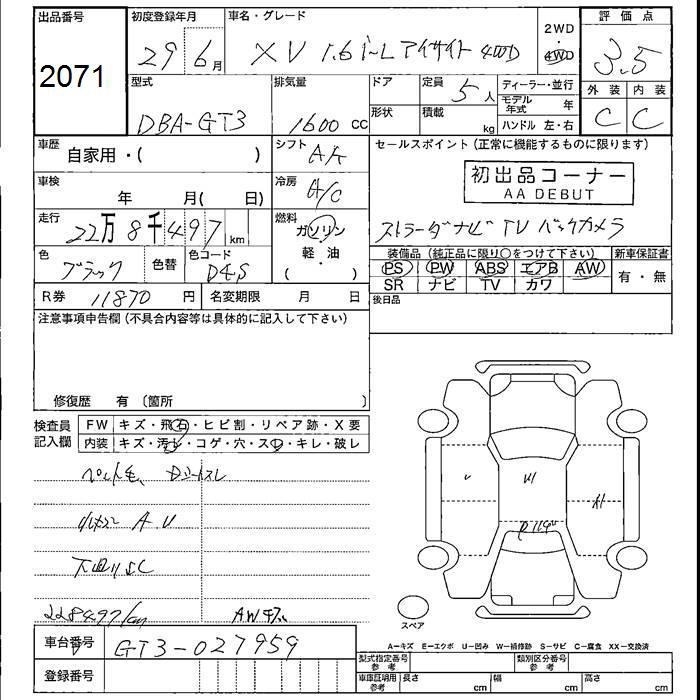 出品番号 初度登録年月 車名・グレード 2WD ・ 4WD 評価点
2071 29年 6月 XV 1.6i-L アイサイト 4WD 3.5
型式 排気量 ドア 定員 5人 ディーラー・並行 外装 内装
DBA-GT3 1600 CC 形状 積載 kg モデル年式 年 C C
ハンドル 左・右
車歴 自家用・( ) シフト AA セールスポイント (正常に機能するものに限ります)
車検 年 月( 日) 冷房 A/C 初出品コーナー
AA DEBUT
走行 22万8千497km 燃料 ガソリン ストラーダナビ TV バックカメラ
色 ブラック 色替 色コード D4S 軽・油 ( )
装備品 (純正品に限り○をつけて下さい) 新車保証書
PS PW ABS エアB AW 有・無
SR ナビ TV カワ
R券 11870 円 名変期限 月 日 後日品
注意事項申告欄 (不具合内容等は具体的に記入して下さい)
修復歴 有 〔箇所 〕
検査員記入欄 FW キズ・飛石・ヒビ割・リペア跡・X要
内装 キズ・汚レ・コゲ・穴・スレ・キレ・破レ
ペット毛 Dシートスレ
A.U
下廻りSC
228497km AWキズ
スペア
車台番号 GT3-027959
A-キズ E-エクボ U-凹み W-補修跡 S-サビ C-腐食 XX-交換済
登録番号 型式指定番号参考 類別区分番号参考
車庫証明用参考 長さ cm 幅 cm 高さ cm